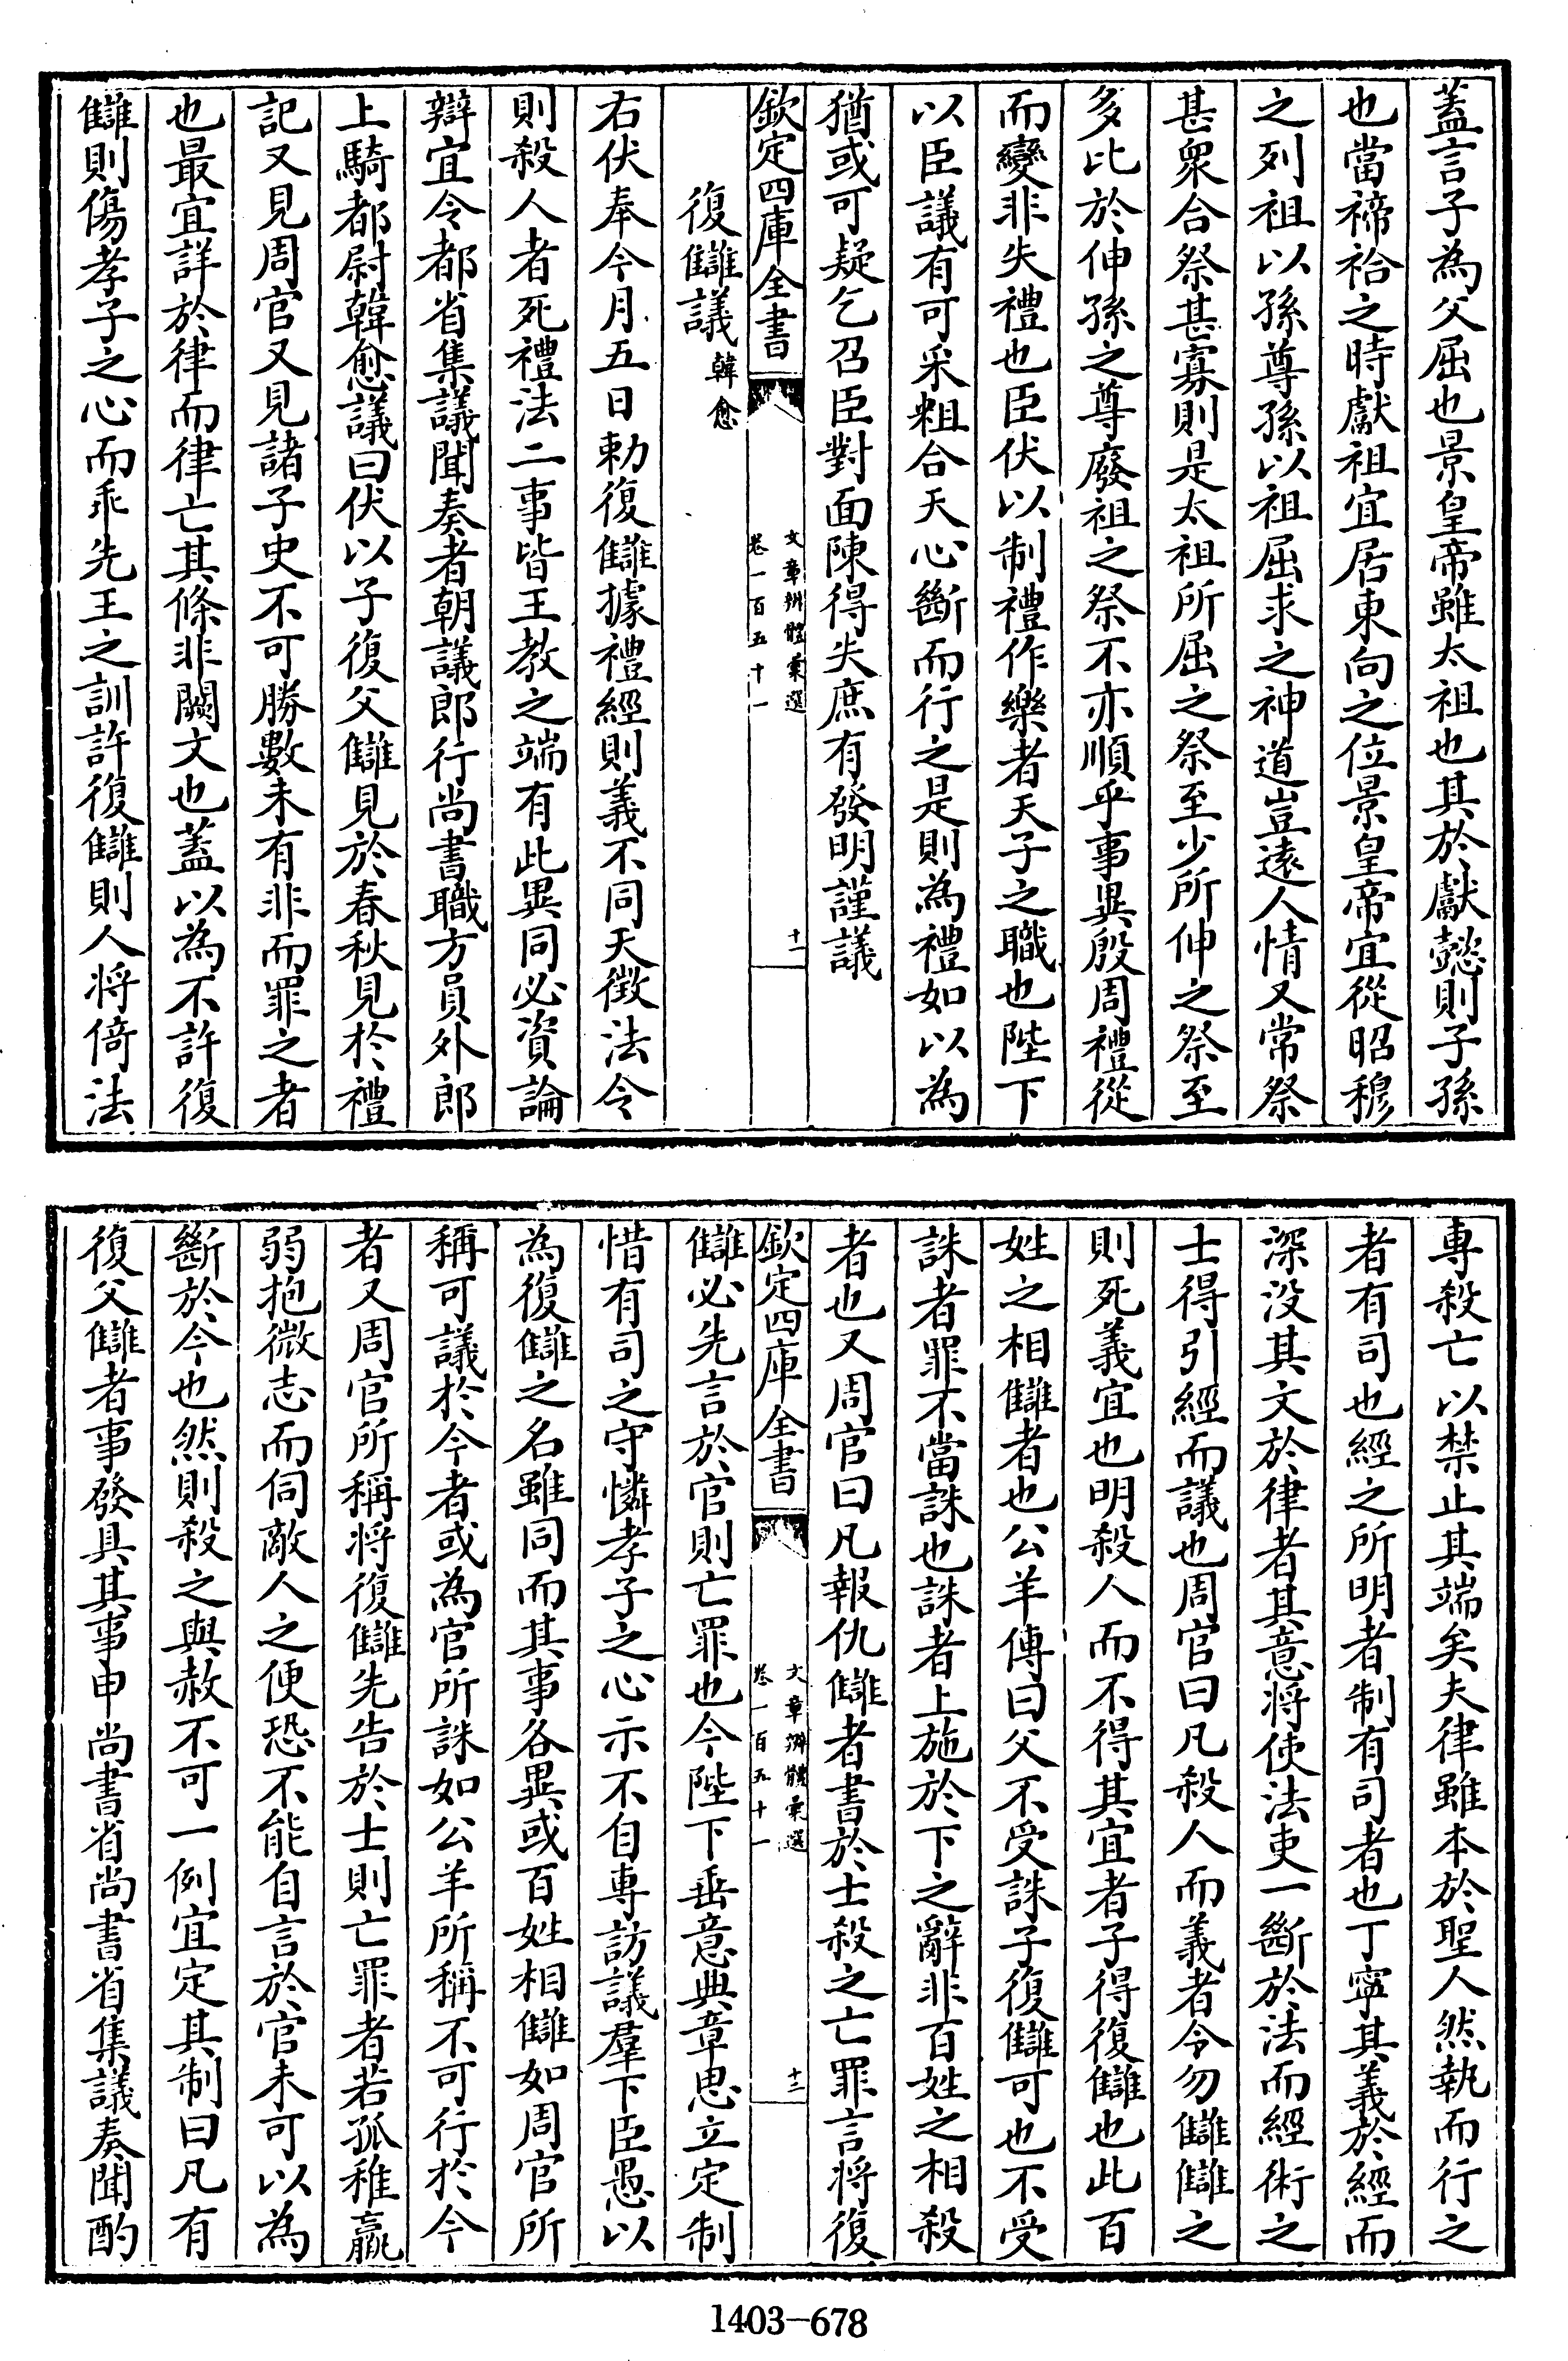 蓋言子為父屈也景皇帝雖太祖也其於獻懿則子孫
也當禘祫之時獻祖宜居東向之位景皇帝宜從昭穆
之列祖以孫尊孫以祖屈求之神道豈遠人情又常祭
甚衆合祭甚寡則是太祖所屈之祭至少所伸之祭至
多比於伸孫之尊廢祖之祭不亦順乎事異殷周禮從
而變非失禮也臣伏以制禮作樂者天子之職也陛下
以臣議有可采粗合天心斷而行之是則為禮如以為
猶或可疑乞召臣對面陳得失庶有發明謹議
欽定四庫全書
文章辨體彙選
卷一百五十一
十一
復讎議韓愈
右伏奉今月五日勅復讎據禮經則義不同天徵法令
則殺人者死禮法二事皆王教之端有此異同必資論
辯宜令都省集議聞奏者朝議郎行尚書職方員外郎
上騎都尉韓愈議曰伏以子復父讎見於春秋見於禮
記又見周官又見諸子史不可勝數未有非而罪之者
也最宜詳於律而律亡其條非闕文也蓋以為不許復
讎則傷孝子之心而乖先王之訓許復讎則人將倚法
專殺亡以禁止其端矣夫律雖本於聖人然執而行之
者有司也經之所明者制有司者也丁寧其義於經而
深没其文於律者其意將使法吏一斷於法而經術之
士得引經而議也周官曰凡殺人而義者令勿讎讎之
則死義宜也明殺人而不得其宜者子得復讎也此百
姓之相讎者也公羊傳曰父不受誅子復讎可也不受
誅者罪不當誅也誅者上施於下之辭非百姓之相殺
者也又周官曰凡報仇讎者書於士殺之亡罪言將復
欽定四庫全書
文章辨體彙選
卷一百五十一
十二
讎必先言於官則亡罪也今陛下垂意典章思立定制
惜有司之守憐孝子之心示不自專訪議羣下臣愚以
為復讎之名雖同而其事各異或百姓相讎如周官所
稱可議於今者或為官所誅如公羊所稱不可行於今
者又周官所稱將復讎先告於士則亡罪者若孤稚羸
弱抱微志而伺敵人之便恐不能自言於官未可以為
斷於今也然則殺之與赦不可一例宜定其制曰凡有
復父讎者事發具其事申尚書省尚書省集議奏聞酌
1403-678